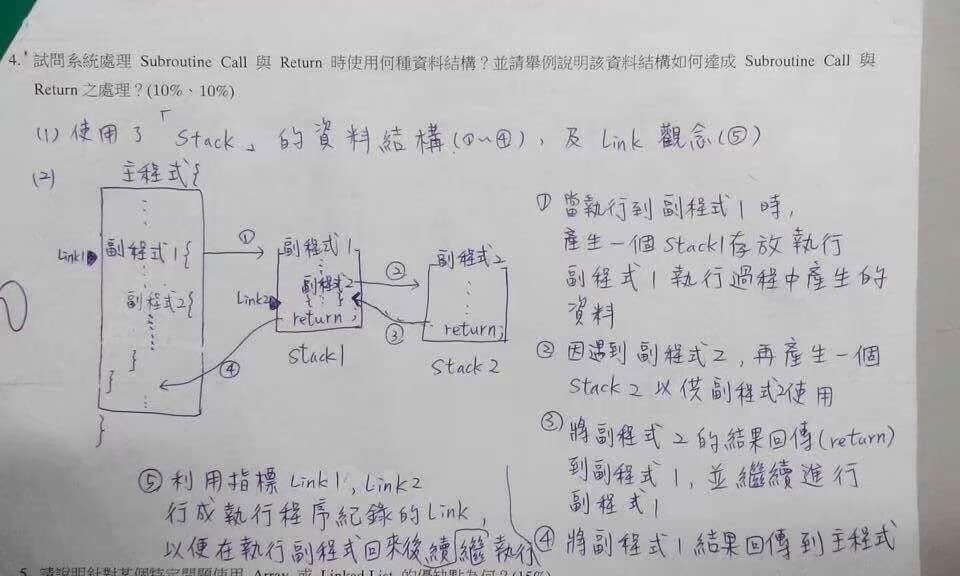 4. 試問系統處理 Subroutine Call 與 Return 時使用何種資料結構？並請舉例說明該資料結構如何達成 Subroutine Call 與
Return 之處理？(10%、10%)
(1) 使用了「Stack」的資料結構(①~④)、及 Link 觀念(⑤)
(2)
主程式{
Link1
副程式1{
副程式2{
}
}
}
①
副程式1
副程式2
{ }
Link2
return;
Stack1
②
③
④
副程式2
return;
Stack2
① 當執行到副程式1時,
產生一個Stack1存放執行
副程式1執行過程中產生的
資料
② 因遇到副程式2,再產生一個
Stack2以供副程式2使用
③ 將副程式2的結果回傳(return)
到副程式1,並繼續進行
副程式1
④ 將副程式1結果回傳到主程式
⑤ 利用指標Link1, Link2
行成執行程序紀錄的Link,
以便在執行副程式回來後續繼執行
5. 請說明針對某個特定問題使用 Array 或 Linked List 的優缺點為何？(15%)